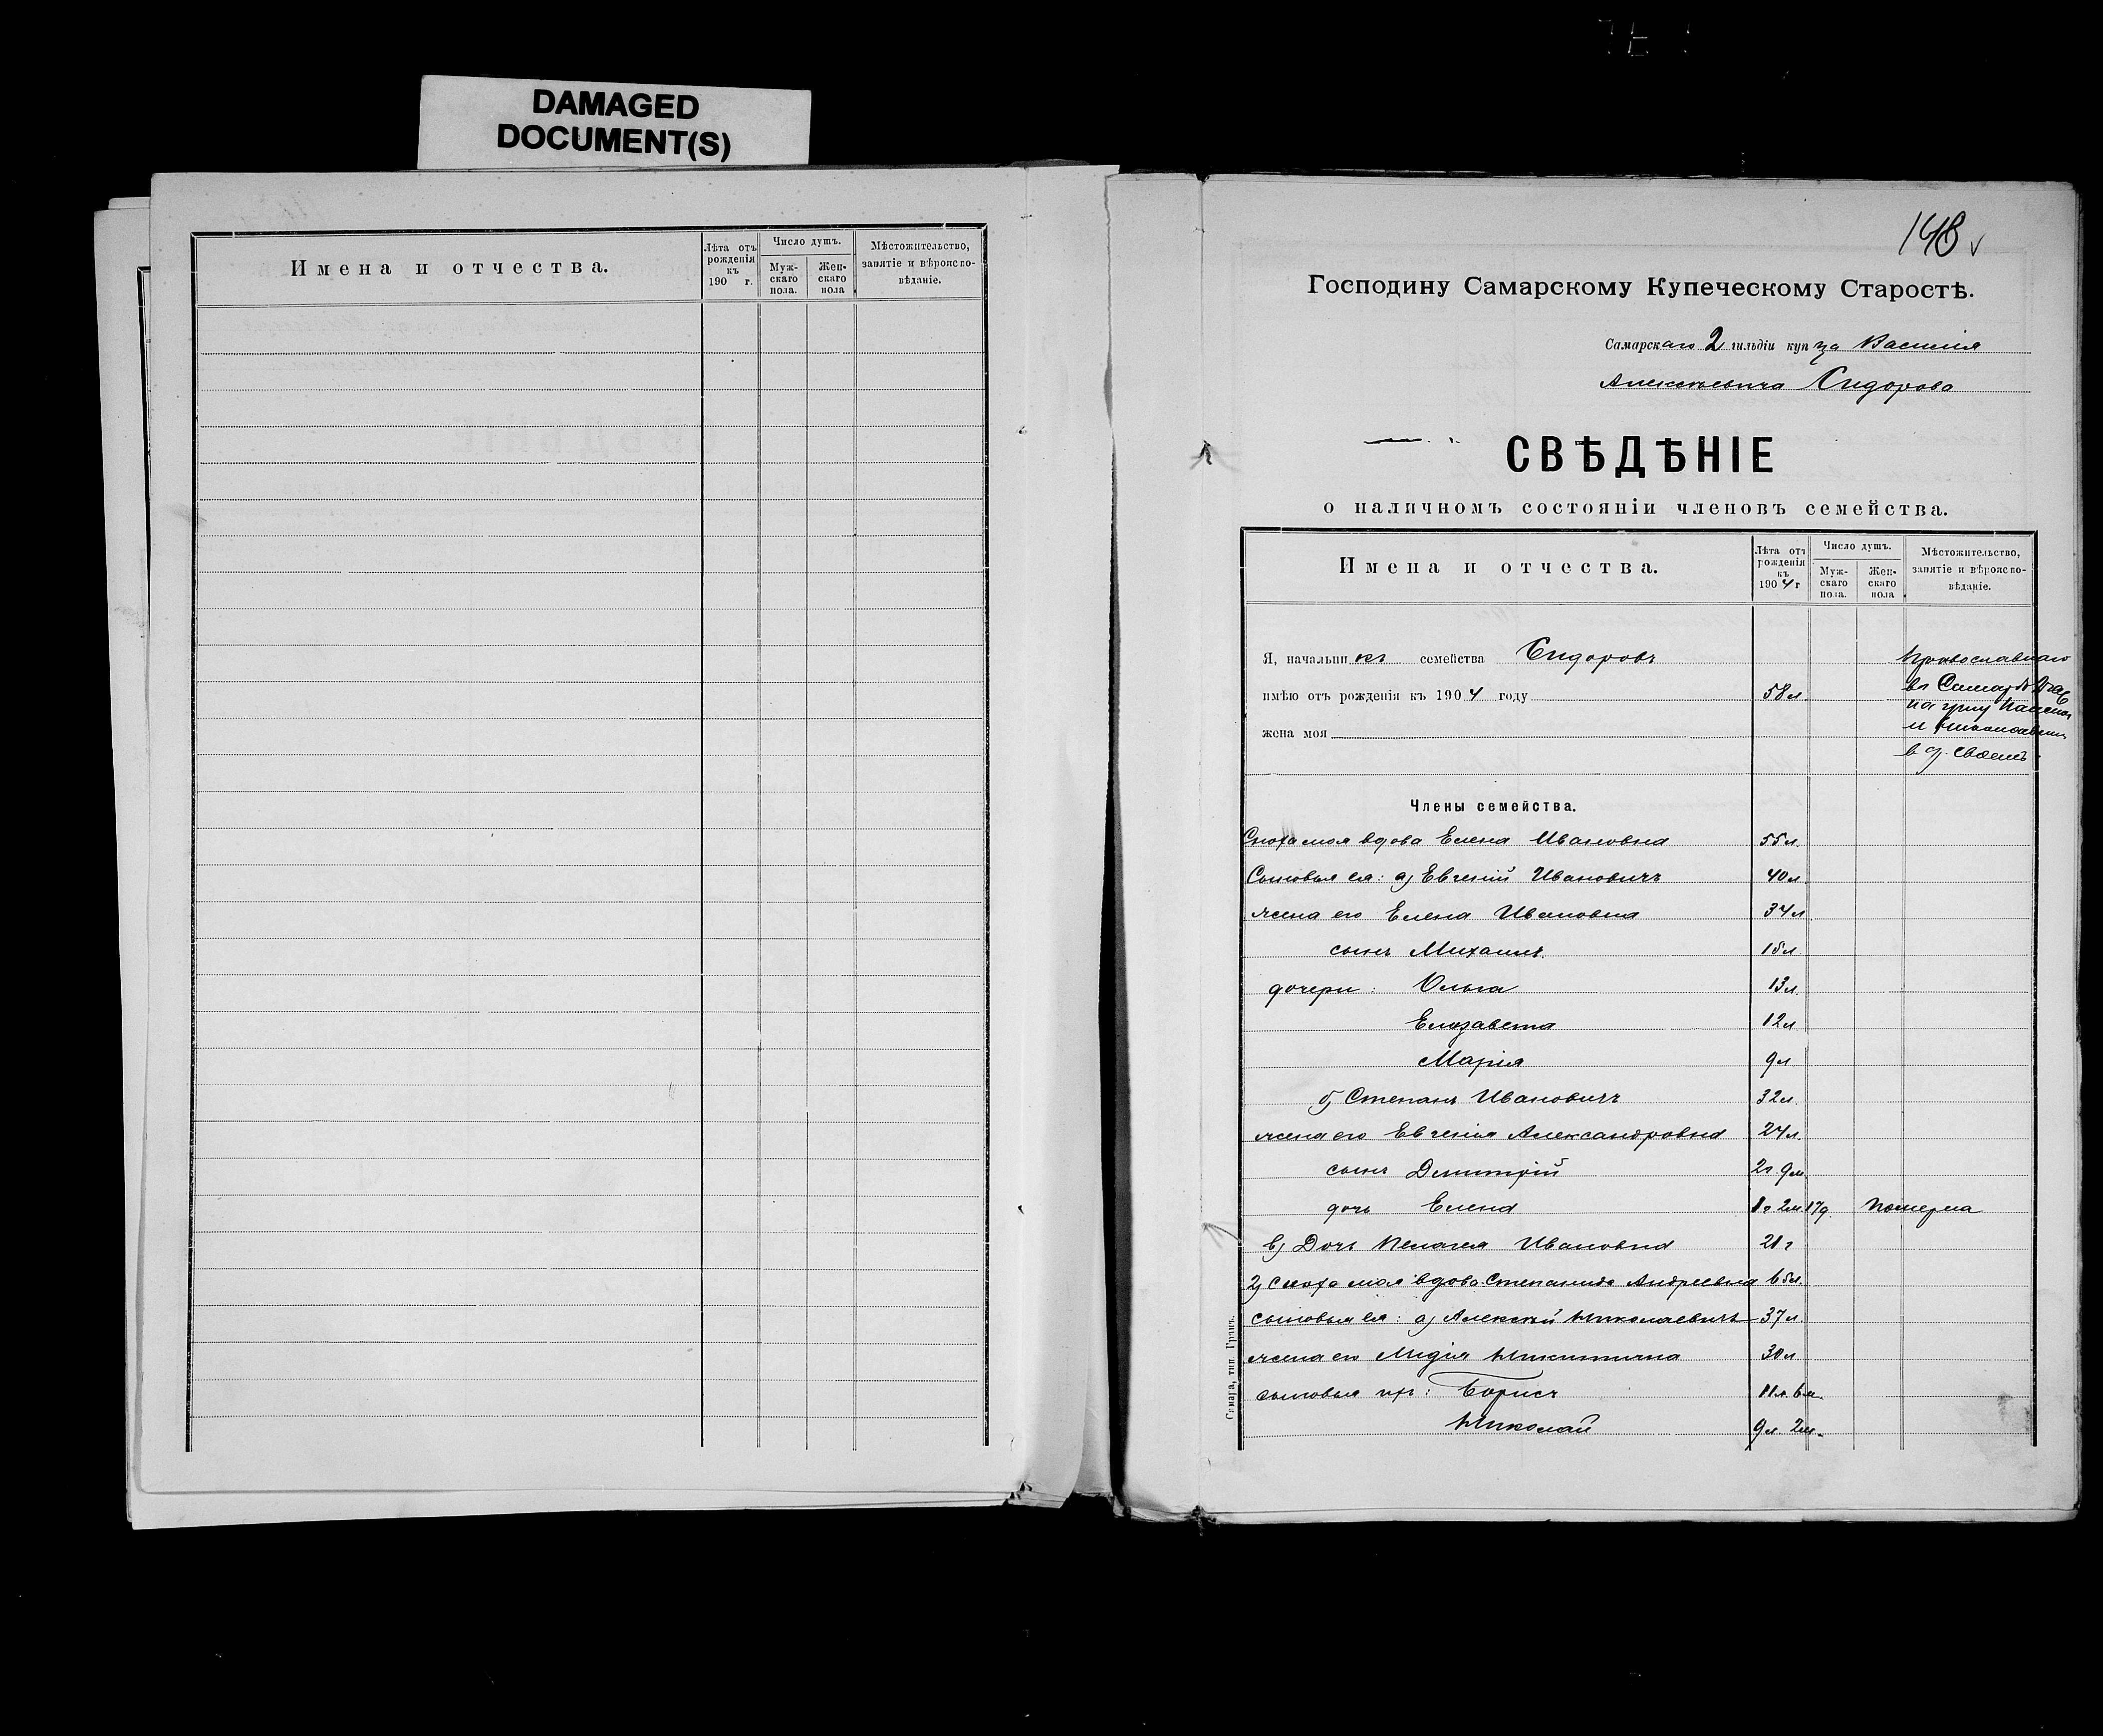 DAMAGED
DOCUMENT(S)
Имена и отчества.
Лѣта отъ рожденія къ 190 г.
Число душъ.
Мужскаго пола.
Женскаго пола
Мѣстожительство, занятіе и вѣроисповѣданіе.
148
Господину Самарскому Купеческому Старостѣ.
Самарскаго 2 гильдіи купца Василія
Алексѣевича Сидорова
СВѢДѢНІЕ
о наличномъ состояніи членовъ семейства.
Имена и отчества.
Лѣта отъ рожденія къ 1904 г
Число душъ.
Мужскаго пола.
Женскаго пола
Мѣстожительство, занятіе и вѣроисповѣданіе.
Я, начальникъ семейства Сидоровъ православнаго
имѣю отъ рожденія къ 1904 году 58 л. въ Самарѣ
на углу
жена моя и
в д. своемъ
Члены семейства.
Сноха моя вдова Елена Ивановна 55 л.
Сыновья ея: а) Евгеній Ивановичъ 40 л.
жена его Елена Ивановна 34 л.
сынъ Михаилъ. 15 л.
дочери: Ольга 13 л.
Елизавета 12 л.
Марія 9 л.
б) Степанъ Ивановичъ 32 л.
жена его Евгенія Александровна 24 л.
сынъ Дмитрій 2 г. 9 м.
дочь Елена 1 г 2 м 17 д. померла
в) Дочь Пелагея Ивановна 21 г
2) Сноха моя вдова Степанида Андреевна 65 л.
сыновья ея: а) Алексѣй Николаевичъ 37 л.
жена его Лидія Никитична 30 л.
сыновья ихъ: Борисъ 11 л. 6 м.
Николай 9 л. 2 м.
Самара, тип. Гранъ.